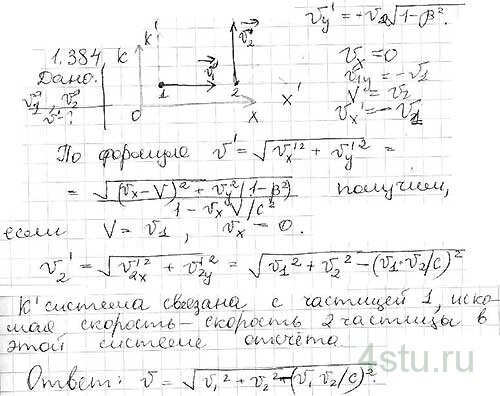 v⃗y' = -v₂√(1-β²).
1.384
Дано:
v⃗₁, v⃗₂
v' - ?
K K' v⃗₁ v⃗₂
1 2
O x x'
vx = 0
v₁y = -v₁
V = v₂
vx' = -v₁
По формуле v' = √(vx'² + vy'²) =
= √((vx-V)² + vy²(1-β²)) / (1 - vxV/c²) получим,
если V = v₁, vx = 0.
v₂' = √(v₂x'² + v₂y'²) = √(v₁² + v₂² - (v₁·v₂/c)²)
K' система связана с частицей 1, иско-
мая скорость - скорость 2 частицы в
этой системе отсчёта
4stu.ru
Ответ: v = √(v₁² + v₂² - (v₁ v₂/c)²).